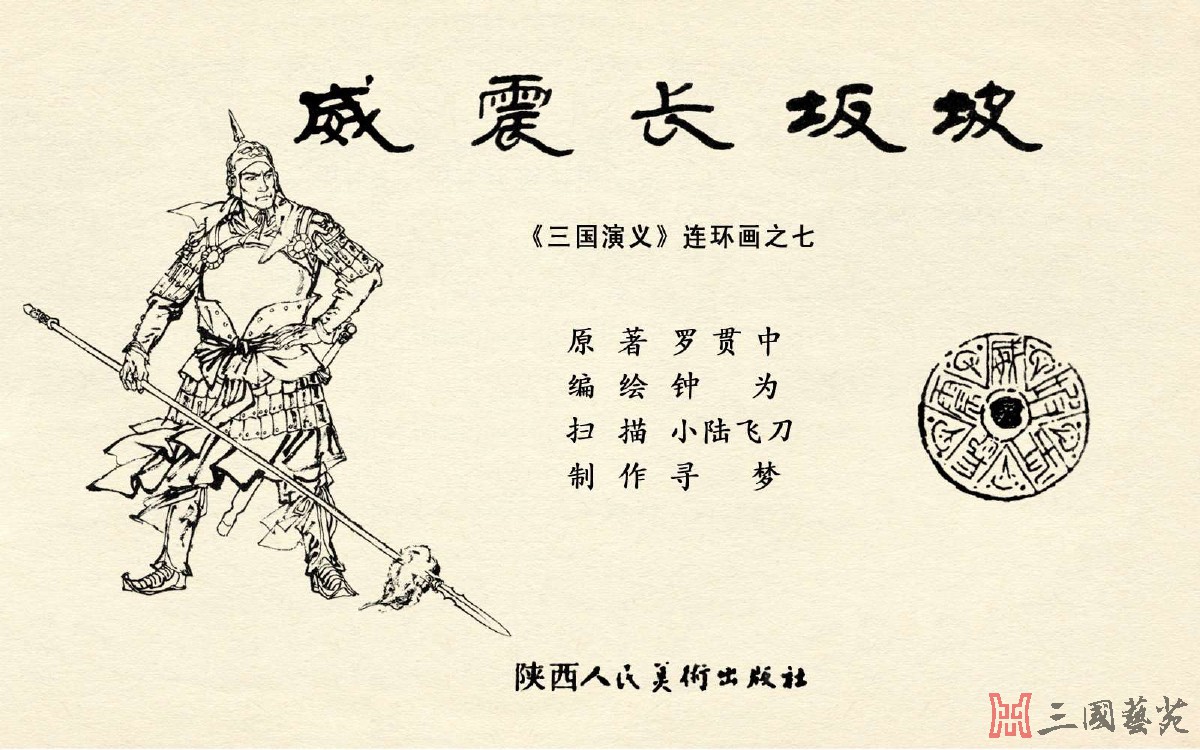 威震长坂坡
《三国演义》连环画之七
原著 罗贯中
编绘 钟为
扫描 小陆飞刀
制作 寻梦
陕西人民美術出版社
三國藝苑